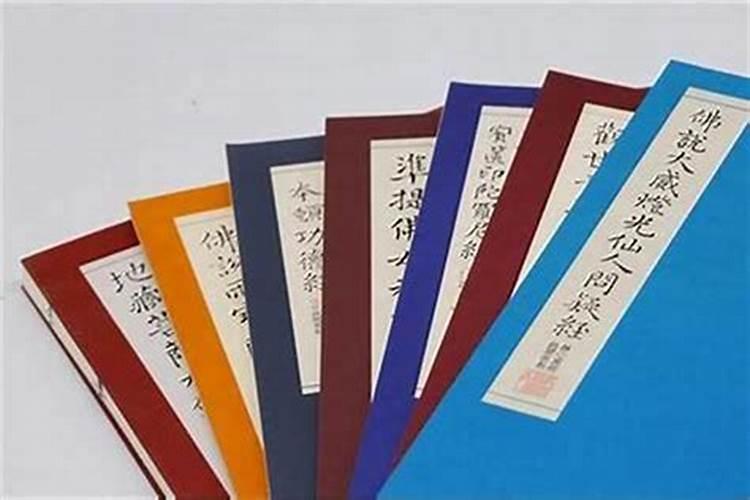 地藏菩薩本
佛說雨寶
本願功德經
準提佛母
寶篋印陀羅尼經
觀世
佛說大威燈光仙人問疑經